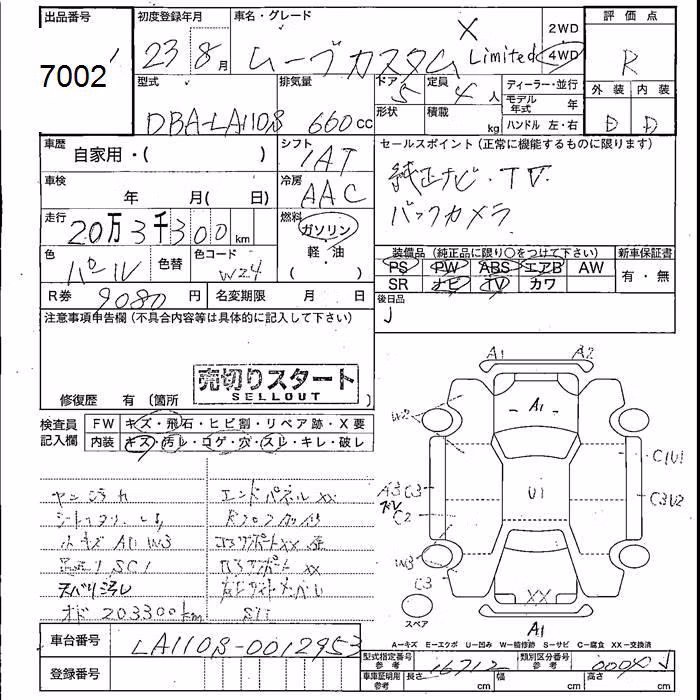 出品番号 初度登録年月 車名・グレード 評価点
7002 23年 8月 ムーブカスタム X Limited 2WD 4WD R
型式 排気量 ドア 定員 ディーラー・並行 外装 内装
DBA-LA110S 660cc 5 4人 モデル年式 年 D D
形状 積載 kg ハンドル 左・右
車歴 自家用・( ) シフト IAT セールスポイント(正常に機能するものに限ります)
車検 年 月( 日) 冷房 AAC 純正ナビ・TV
バックカメラ
走行 20万3千300km 燃料 ガソリン 軽・油 ( )
色 パール 色替 色コード W24
装備品(純正品に限り○をつけて下さい) 新車保証書
PS PW ABS エアB AW 有・無
SR ナビ TV カワ
R券 9080円 名変期限 月 日 後日品
注意事項申告欄(不具合内容等は具体的に記入して下さい)
売切りスタート
SELLOUT
修復歴 有(箇所 )
検査員記入欄 FW キズ・飛石・ヒビ割・リペア跡・X要
内装 キズ・汚レ・コゲ・穴・スレ・キレ・破レ
A1 A2
W2 A1
C1U1
A3 C3 U1 C3U2
C2
W3
C3 XX
スペア A1
エンドパネルXX
小キズ AU W3
SC1
天バリ汚レ
オド 203300km
A=キズ E=エクボ U=凹み W=補修跡 S=サビ C=腐食 XX=交換済
車台番号 LA110S-0012953
型式指定番号 参考 16712 類別区分番号 参考 0004
登録番号 車庫証明用 参考 長さ cm 幅 cm 高さ cm